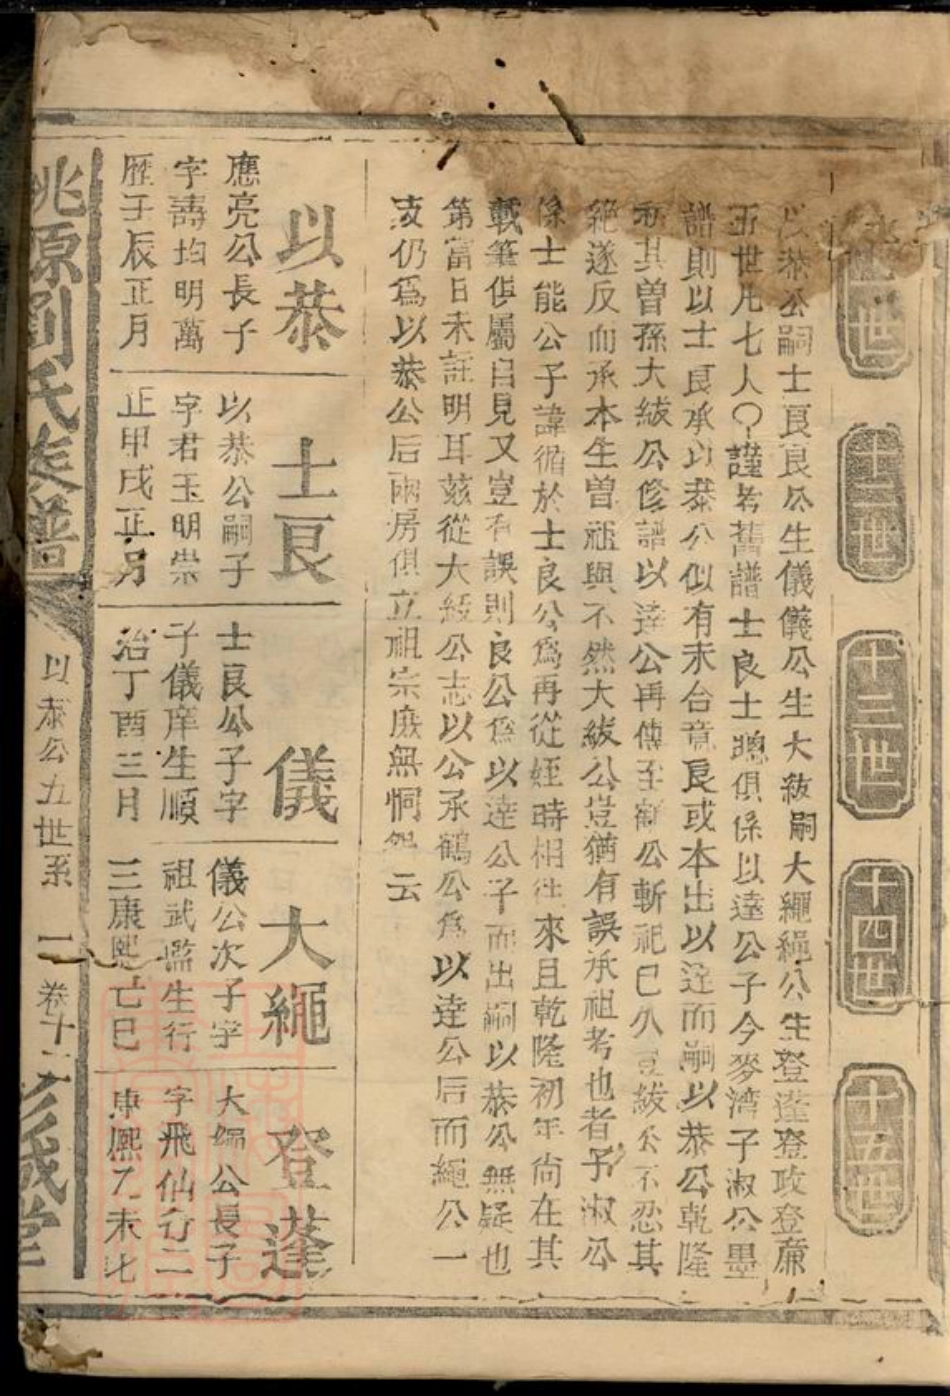 十二世
十三世
十四世
十五世
以恭公嗣士良良公生儀儀公生大紱嗣大繩繩公生登蓬登政登廉
五世凡七人○謹考舊譜士良士聰俱係以達公子今麥湾子淑公墨
譜則以士良承以恭公似有未合竟良或本出以達而嗣以恭公乾隆
初其曾孫大紱公修譜以達公再傳至鶴公斬祀已久豈紱公不忍其
絕遂反而承本生曾祖與不然大紱公豈猶有誤承祖考也者子淑公
係士能公子諱循於士良公為再從姪時相往來且乾隆初年尚在其
載筆俱屬目見又豈有誤則良公為以達公子而出嗣以恭公無疑也
第當日未註明耳茲從大紱公志以公承鶴公為以達公后而繩公一
支仍爲以恭公后兩房俱立祖宗庶無恫怨云
以恭
應亮公長子
字壽均明萬
歷壬辰正月
士良
以恭公嗣子
字君玉明崇
正甲戌正月
儀
士良公子字
子儀庠生順
治丁酉三月
大繩
儀公次子字
祖武監生行
三康熙丁巳
登蓬
大繩公長子
字飛仙行二
康熙乙未七
桃源劉氏族譜
以恭公五世系
一
卷十一
彭城堂